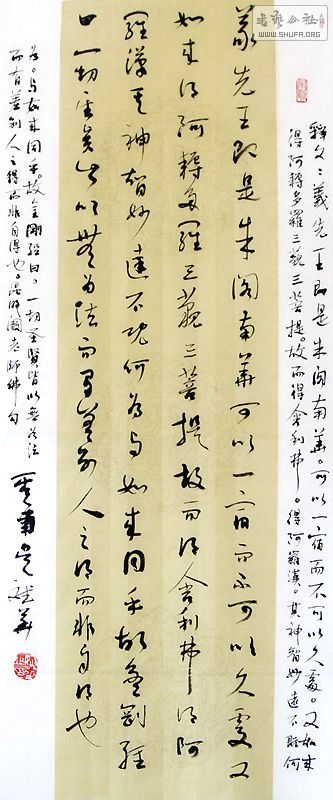 書藝公社
WWW.SHUFA.ORG
釋文：義先王即是朱阁南華。可以一宿而不可以久處。又如来
得阿耨多羅三藐三菩提。故而得舍利弗。得阿羅漢。其神智妙達不既何
義先王即是朱阁南華可以一宿而不可以久處又
如来得阿耨多羅三藐三菩提故而得舍利弗得阿
羅漢其神智妙達不既何為与如来同乎故金剛經
曰一切圣賢皆以無為法而有差别人之得而非自得也
為。与如来同乎。故金剛經曰。一切圣賢皆以無為法
而有差别人之得而非自得也。